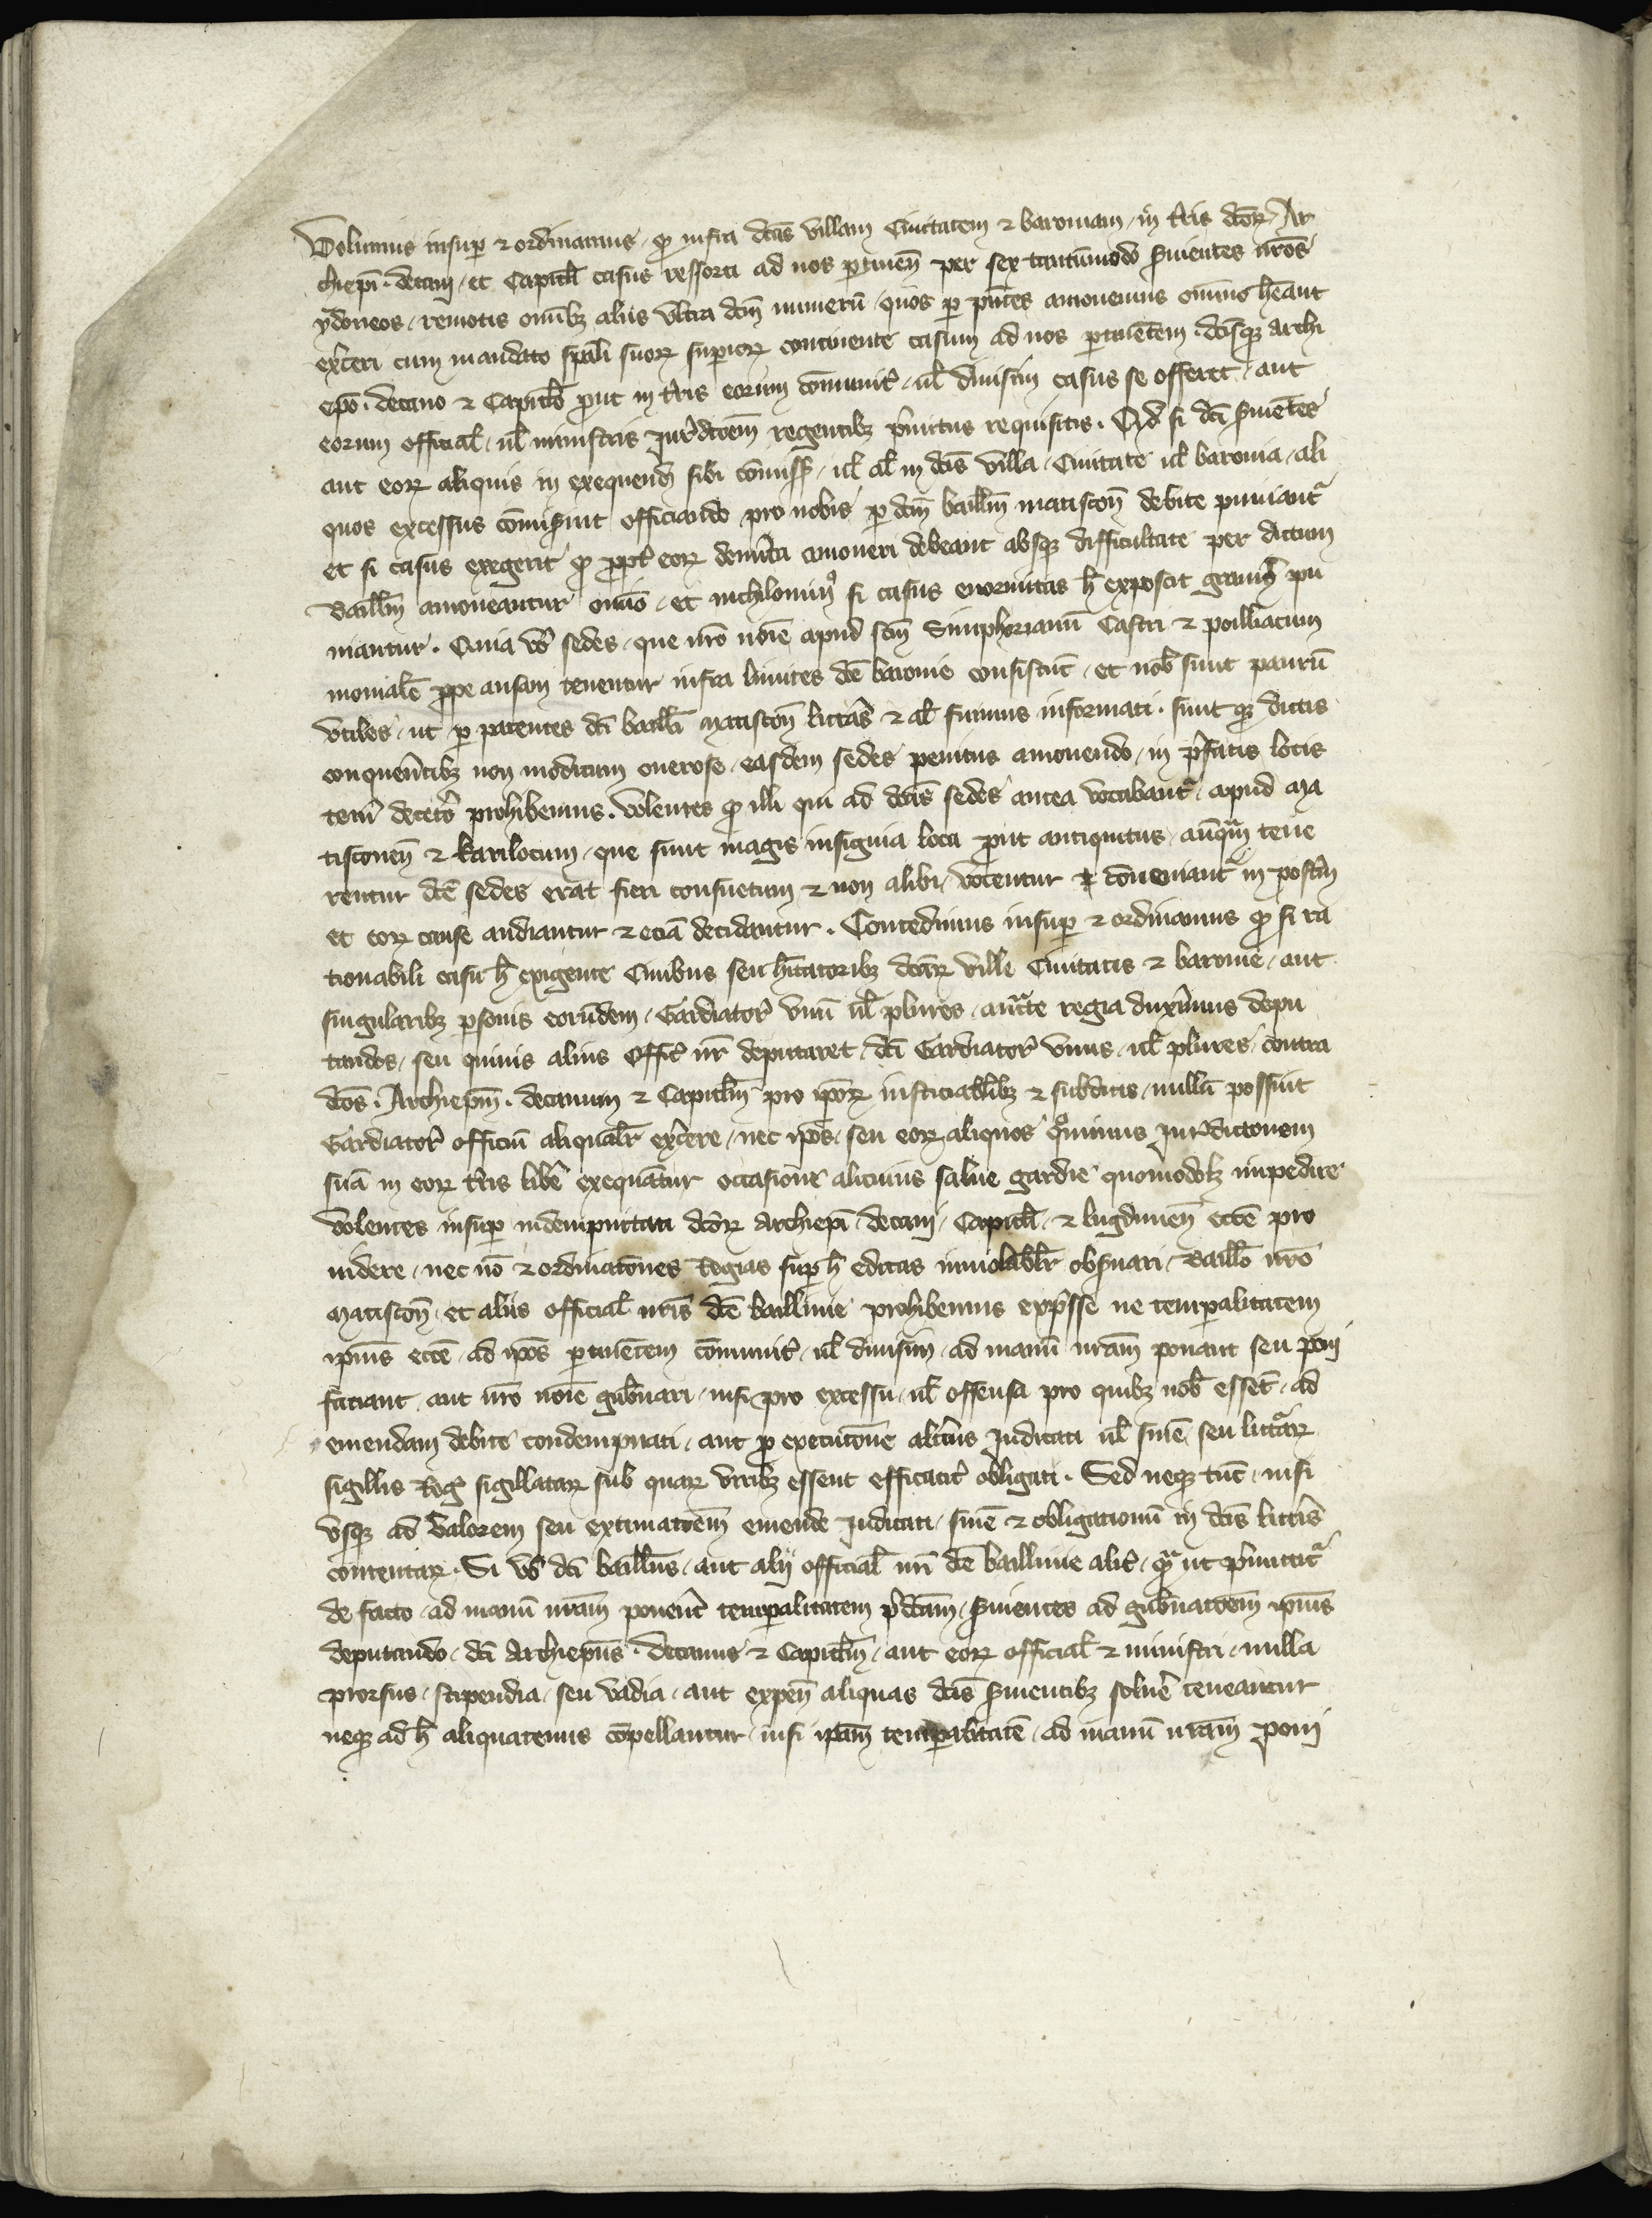 Volumus insup̲ ⁊ ordinamus / qꝫ infra dc̄as villam Ciuitatem ⁊ baroniam / in t̄ris dc̄oꝝ Ar
chiep̄i . decani / et Capitl̄i casus ressorti ad nos ꝑtinen̄ per sex tantūmodo s̄uientes nr̄os
ydoneos / remotis om̄ibꝫ aliis vltra dc̄m numerū / quos ꝑ p̄ntes amouemus omīno hēant
ex̄ceri cum mandato sp̄ali suoꝝ sup̄ioꝝ continente casum ad nos ꝑtinētem . dc̄isqꝫ Archi
ep̄o . decano ⁊ Capitl̄o ꝓut in t̄ris eorum com̄unit̄ / ul̄ diuisim casus se offeret / aut
eorum official̄ / ul̄ ministris Jur̄dc̄oem regentibꝫ p̄mitus requisitis . Qd̄ si dc̄i s̄uiētes
aut eoꝝ aliquis in exequend̄ sibi com̄iss̄ / ul̄ al̄ in dc̄is villa / Ciuitate ul̄ baronia / ali
quos excessus com̄is̄int officiando pro nobis ꝑ dc̄m bailll̄m matiscon̄ debite puniant᷑
et si casus exegerit qꝫ ꝓpt̄ eoꝝ dem̄ita amoueri debeant absqꝫ difficultate per dictum
baill̄m amoueantur om̄io / et nichilomin᷒ si casus enormitas h̄ exposcit grauit̄ pu
niantur . Quia v̄o sedes / que nr̄o noīe apud sc̄m Simphorianū Castri ⁊ poilliacum
monialē ꝓpe ansam tenentur infra limites dc̄e baronie consistūt / et nob̄ sunt parum
vtiles / ut ꝑ patentes dc̄i bailli matiscon̄ litt̄as ⁊ al̄ fuimus informati . sunt qꝫ dictis
conquerētibꝫ non modicum onerose / easdem sedes penitus amouendo / in p̄fatis locis
teneri decet̄o prohibemus . Volentes qꝫ illi qui ad dc̄as sedes antea vocabant᷑ / apud ma
tisconen̄ ⁊ karilocum / que sunt magis insignia loca ꝓut antiquitus / anq̄m tene
rentur dc̄e sedes erat fieri consuetum ⁊ non alibi / vocentur ⁊ cōueniant᷑ in post̄m
et eoꝝ cause audiantur ⁊ eciā decidantur . Concedimus insup̲ ⁊ ordinamus qꝫ si ra
tionabili casu h̄ exigente Ciuibus seu h̄itatoribꝫ dc̄aꝝ ville Ciuitatis ⁊ baronie / aut
singularibꝫ ꝑsonis eorūdem / Gardiator̄ vnū ul̄ plures / auct̄te regia dux̄imus depu
tandos / seu quiuis alius offic̄ nr̄ deputaret / dc̄i Gardiator̄ vnus / ul̄ plures / contra
dc̄os . Archiep̄m . decanum ⁊ Capitl̄m pro ip̄oꝝ iusticiabil̄bꝫ ⁊ subditis / nullū possint
Gardiator̄ officiū aliqualr̄ ex̄cere / nec ip̄os / seu eoꝝ aliquos qͦminus Jur̄dictionem
suā in eoꝝ t̄ris libe᷑ exequātur occasione alicuius salue gardie quomodolꝫ impedire
Volentes insup̲ indempnitati dc̄oꝝ Archiep̄i / decani / Capitl̄i / ⁊ lugdunen̄ ecc̄e pro
uidere / nec nō ⁊ ordinatōnes Regias sup̲ h̄ editas inuiolabilr̄ obs̄uari / Baill̄o nr̄o
matiscon̄ / et aliis official̄ nr̄is dc̄e bailliuie prohibemus exp̄sse ne temꝑalitatem
ip̄ius ecc̄e / ad ip̄os ꝑtinētem cōmunit̄ / ul̄ diuisim / ad manū nr̄am ponant seu poni
faciant / aut nr̄o noīe gub̄nari / nisi pro excessu / ul̄ offensa pro quibꝫ nob̄ essēt / ad
emendam debite condempnati / aut ꝓ executōne alicuius Judicati ul̄ sinē / seu litt̄aꝝ
sigillis Reḡ sigillataꝝ sub quaꝝ viribꝫ essent efficacit̄ obligati . Sed neqꝫ tūc / nisi
vsqꝫ ad valorem seu extimatōem emende Judicati / sinē ⁊ obligationū in dc̄is litt̄is
contentaꝝ . Si v̄o dc̄i baill̄us / aut alij official̄ nr̄i dc̄e bailliuie alit̄ / qͣ ut p̄mittit᷑
de facto / ad manū nr̄am ponerēt temꝑalitatem p̄dc̄am / s̄uientes ad gub̄natōem ip̄ius
deputando / dc̄i Archiep̄us . decanus ⁊ Capitl̄m / aut eoꝝ official̄ ⁊ ministri / nulla
prorsus / stipendia / seu vadia / aut expen̄ aliquas dc̄is s̄uientibꝫ solu̲e teneantur
neqꝫ ad h̄ aliquatenus cōpellantur / nisi ip̄am temꝑalitatē / ad manū nr̄am poni